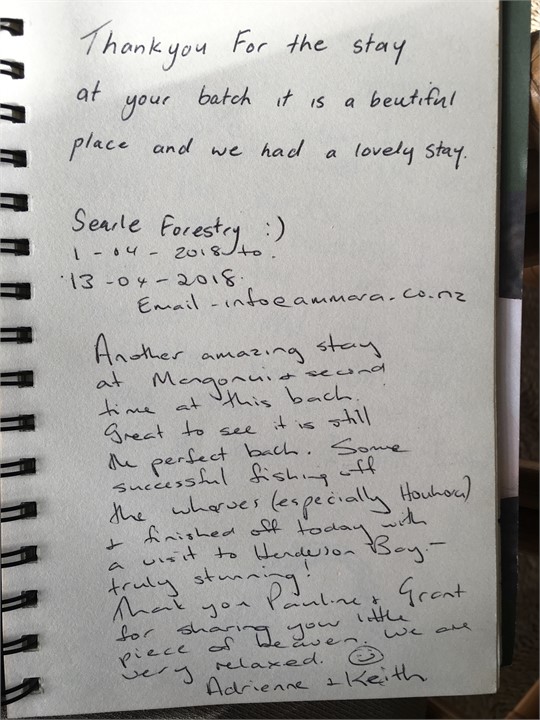 Thankyou For the stay
at your batch it is a beutiful
place and we had a lovely stay.
Searle Forestry :)
1-04-2018 to
13-04-2018.
Email - info@ammara.co.nz
Another amazing stay
at Mangonui & second
time at this bach.
Great to see it is still
the perfect bach. Some
successful fishing off
the wharves (especially Houhora)
& finished off today with
a visit to Henderson Bay -
truly stunning!
Thank you Pauline & Grant
for sharing your little
piece of heaven. We are
very relaxed. ☺
Adrienne & Keith